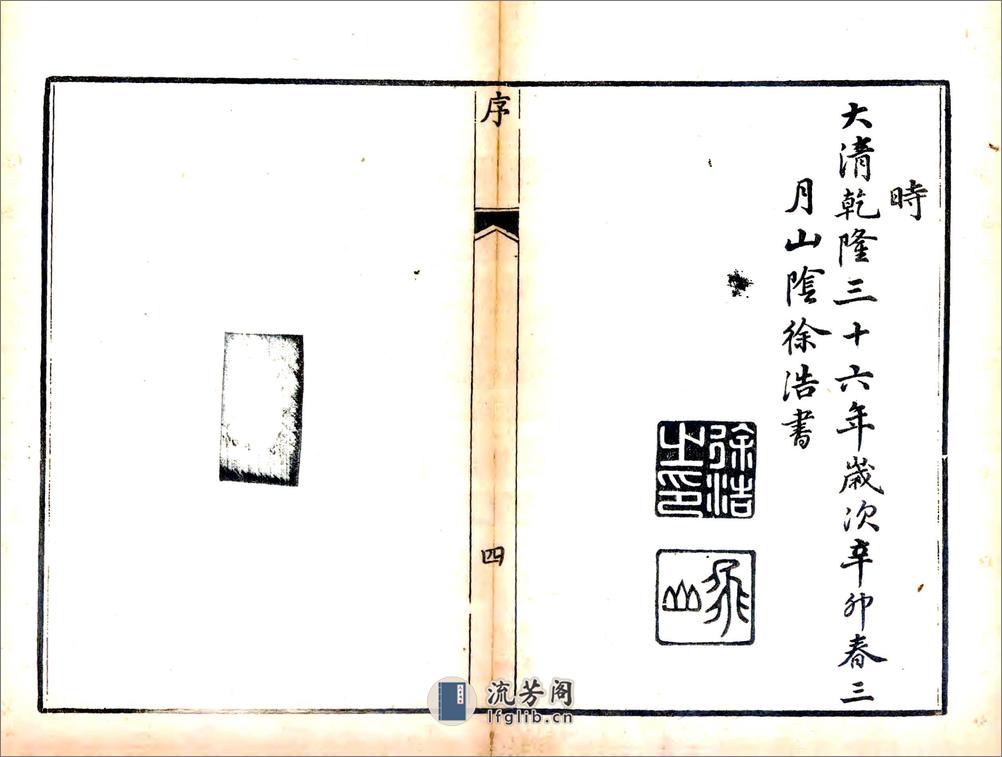 時
大清乾隆三十六年歲次辛卯春三
月山陰徐浩書
徐浩
之印
序
四
流芳阁
lfglib.cn